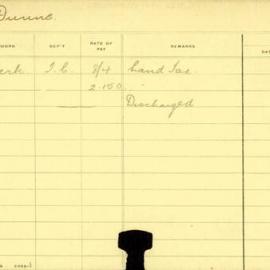 Dunne.
WORK DEP'T RATE OF PAY REMARKS DATE
erk I.C. 3/4 Land Tax.
2.150 "
Discharged